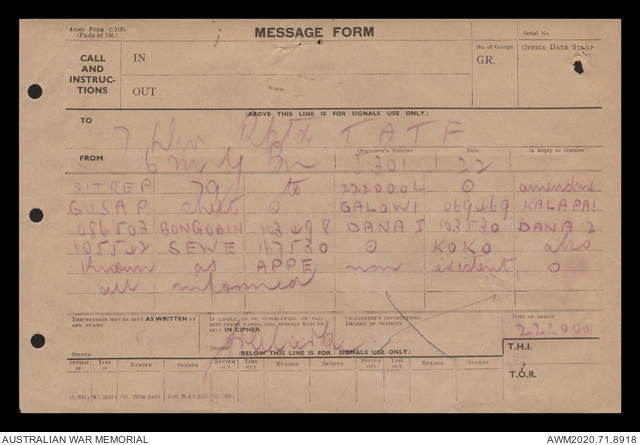 ARMY FORM C.2128.
(Pads of 100.)
MESSAGE FORM
Serial No.
CALL
AND
INSTRUC-
TIONS
IN
OUT
No. of Groups.
GR.
OFFICE DATE STAMP
(ABOVE THIS LINE IS FOR SIGNALS USE ONLY.)
TO
7 Div Rptd T A T F
FROM
Originator's Number
Date
In Reply to Number
I 301 22
SITREP 79 to 222000L O amendms
GUSAP sheet O GALOWI 069469 KALAPAI
086503 BONGOBIN 103498 DANA I 103530 DANA 2
105542 SEWE 167530 O KOKO also
known as APPE non existent O
all informed
THIS MESSAGE MAY BE SENT AS WRITTEN BY
ANY MEANS.
SIGNED
IF LIABLE TO BE INTERCEPTED OR FALL
INTO ENEMY HANDS, THIS MESSAGE MUST BE
SENT IN CIPHER.
SIGNED
ORIGINATOR'S INSTRUCTIONS
DEGREE OF PRIORITY
TIME OF ORIGIN
222000
(BELOW THIS LINE IS FOR SIGNALS USE ONLY.)
T.H.I.
T.O.R.
SYSTEM IN
TIME IN
READER
SENDER
SYSTEM OUT
TIME OUT
READER
SENDER
SYSTEM OUT
TIME OUT
READER
SENDER
AUSTRALIAN WAR MEMORIAL
AWM2020.71.8918